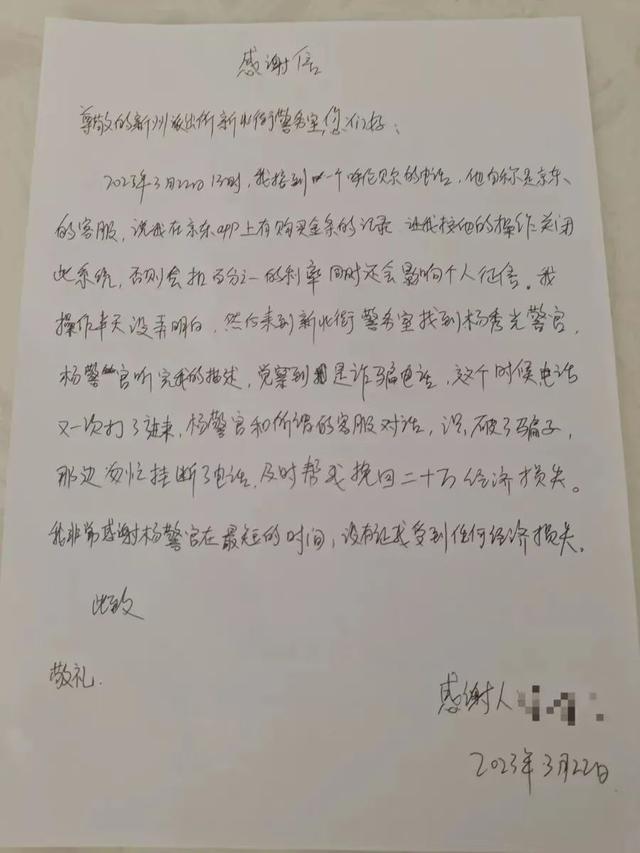 感谢信
尊敬的新州派出所新北街警务室,您们好:
2023年3月22日13时,我接到一个呼伦贝尔的电话,他自称是京东
的客服,说我在京东APP上有购买金条的记录 让我按他的操作关闭
此系统,否则会扣百分之一的利率同时还会影响个人征信。我
操作半天没弄明白,然后来到新北街警务室找到杨秀光警官,
杨警官听完我的描述,觉察到是诈骗电话,这个时候电话
又一次打了进来,杨警官和所谓的客服对话,识破了骗子,
那边匆忙挂断了电话,及时帮我挽回二十万经济损失。
我非常感谢杨警官在最短的时间,没有让我受到任何经济损失。
此致
敬礼.
感谢人
2023年3月22日